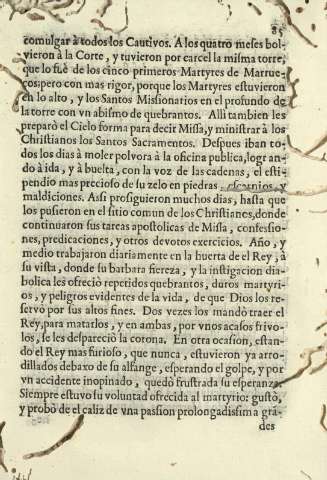 85
comulgar à todos los Cautivos. A los quatro meses bol-
vieron à la Corte, y tuvieron por carcel la misma torre,
que lo fuè de los cinco primeros Martyres de Marrue-
cos; pero con mas rigor, porque los Martyres estuvieron
en lo alto, y los Santos Missionarios en el profundo de
la torre con vn abismo de quebrantos. Alli tambien les
preparò el Cielo forma para decir Missa, y ministrar à los
Christianos los Santos Sacramentos. Despues iban to-
dos los dias à moler polvora à la oficina publica, logran-
do à ida, y à buelta, con la voz de las cadenas, el esti-
pendio mas precioso de su zelo en piedras, y
maldiciones. Assi prosiguieron muchos dias, hasta que
los pusieron en el sitio comun de los Christianes, donde
continuaron sus tareas apostolicas de Missa, confessio-
nes, predicaciones, y otros devotos exercicios. Año, y
medio trabajaron diariamente en la huerta de el Rey, à
su vista, donde su barbara fiereza, y la instigacion dia-
bolica les ofreciò repetidos quebrantos, duros martyri-
os, y peligros evidentes de la vida, de que Dios los re-
servo por sus altos fines. Dos vezes los mandò traer el
Rey, para matarlos, y en ambas, por vnos acasos frivo-
los, se les despareciò la corona. En otra ocasion, estan-
do el Rey mas furioso, que nunca, estuvieron ya arro-
dillados debaxo de su alfange, esperando el golpe, y por
vn accidente inopinado, quedò frustrada su esperanza.
Siempre estuvo su voluntad ofrecida al martyrio: gustò,
y probò de el caliz de vna passion prolongadissima grã-
des